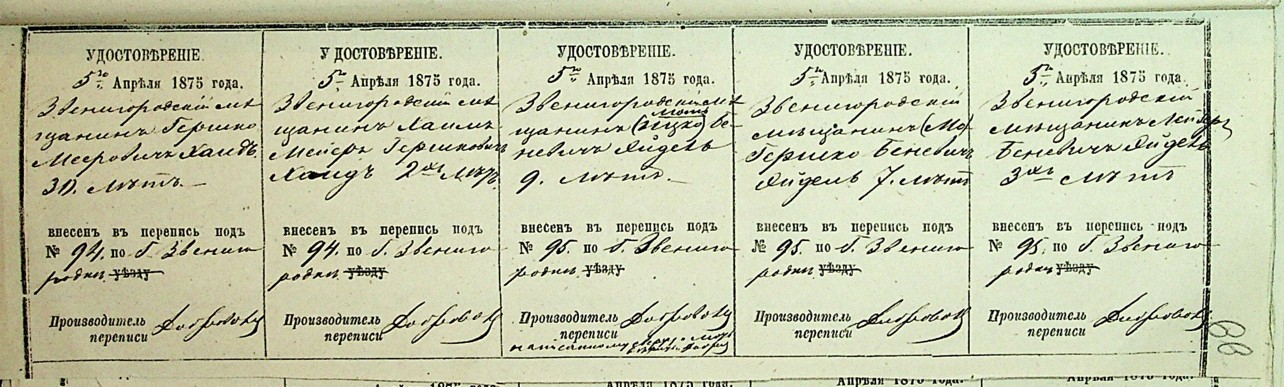 УДОСТОВѢРЕНІЕ.
5го Апрѣля 1875 года.
Звенигородскій мѣ
щанинъ Гершко
Мееровичъ Хаидъ
30. лѣтъ.
внесенъ въ перепись подъ
№ 94. по Г. Звениго
родки уѣзду
Производитель
переписи
УДОСТОВѢРЕНІЕ.
5го Апрѣля 1875 года.
Звенигородскій мѣ
щанинъ Хаимъ
Мейеръ Гершковичъ
Хаидъ 2хъ
внесенъ въ перепись подъ
№ 94. по Г. Звениго
родки уѣзду
Производитель
переписи
УДОСТОВѢРЕНІЕ.
5го Апрѣля 1875 года.
Звенигородскій мѣ
щанинъ Бе-
невичъ Айдель
9. лѣтъ.
внесенъ въ перепись подъ
№ 95. по Г. Звениго
родки уѣзду
Производитель
переписи
УДОСТОВѢРЕНІЕ.
5го Апрѣля 1875 года.
Звенигородскій
мѣщанинъ
Гершко Беневичъ
Айдель 7. лѣтъ
внесенъ въ перепись подъ
№ 95. по Г. Звениго
родки уѣзду
Производитель
переписи
УДОСТОВѢРЕНІЕ.
5го Апрѣля 1875 года.
Звенигородскій
мѣщанинъ
Беневичъ Айдель
3хъ лѣтъ
внесенъ въ перепись подъ
№ 95. по Г. Звениго
родки уѣзду
Производитель
переписи